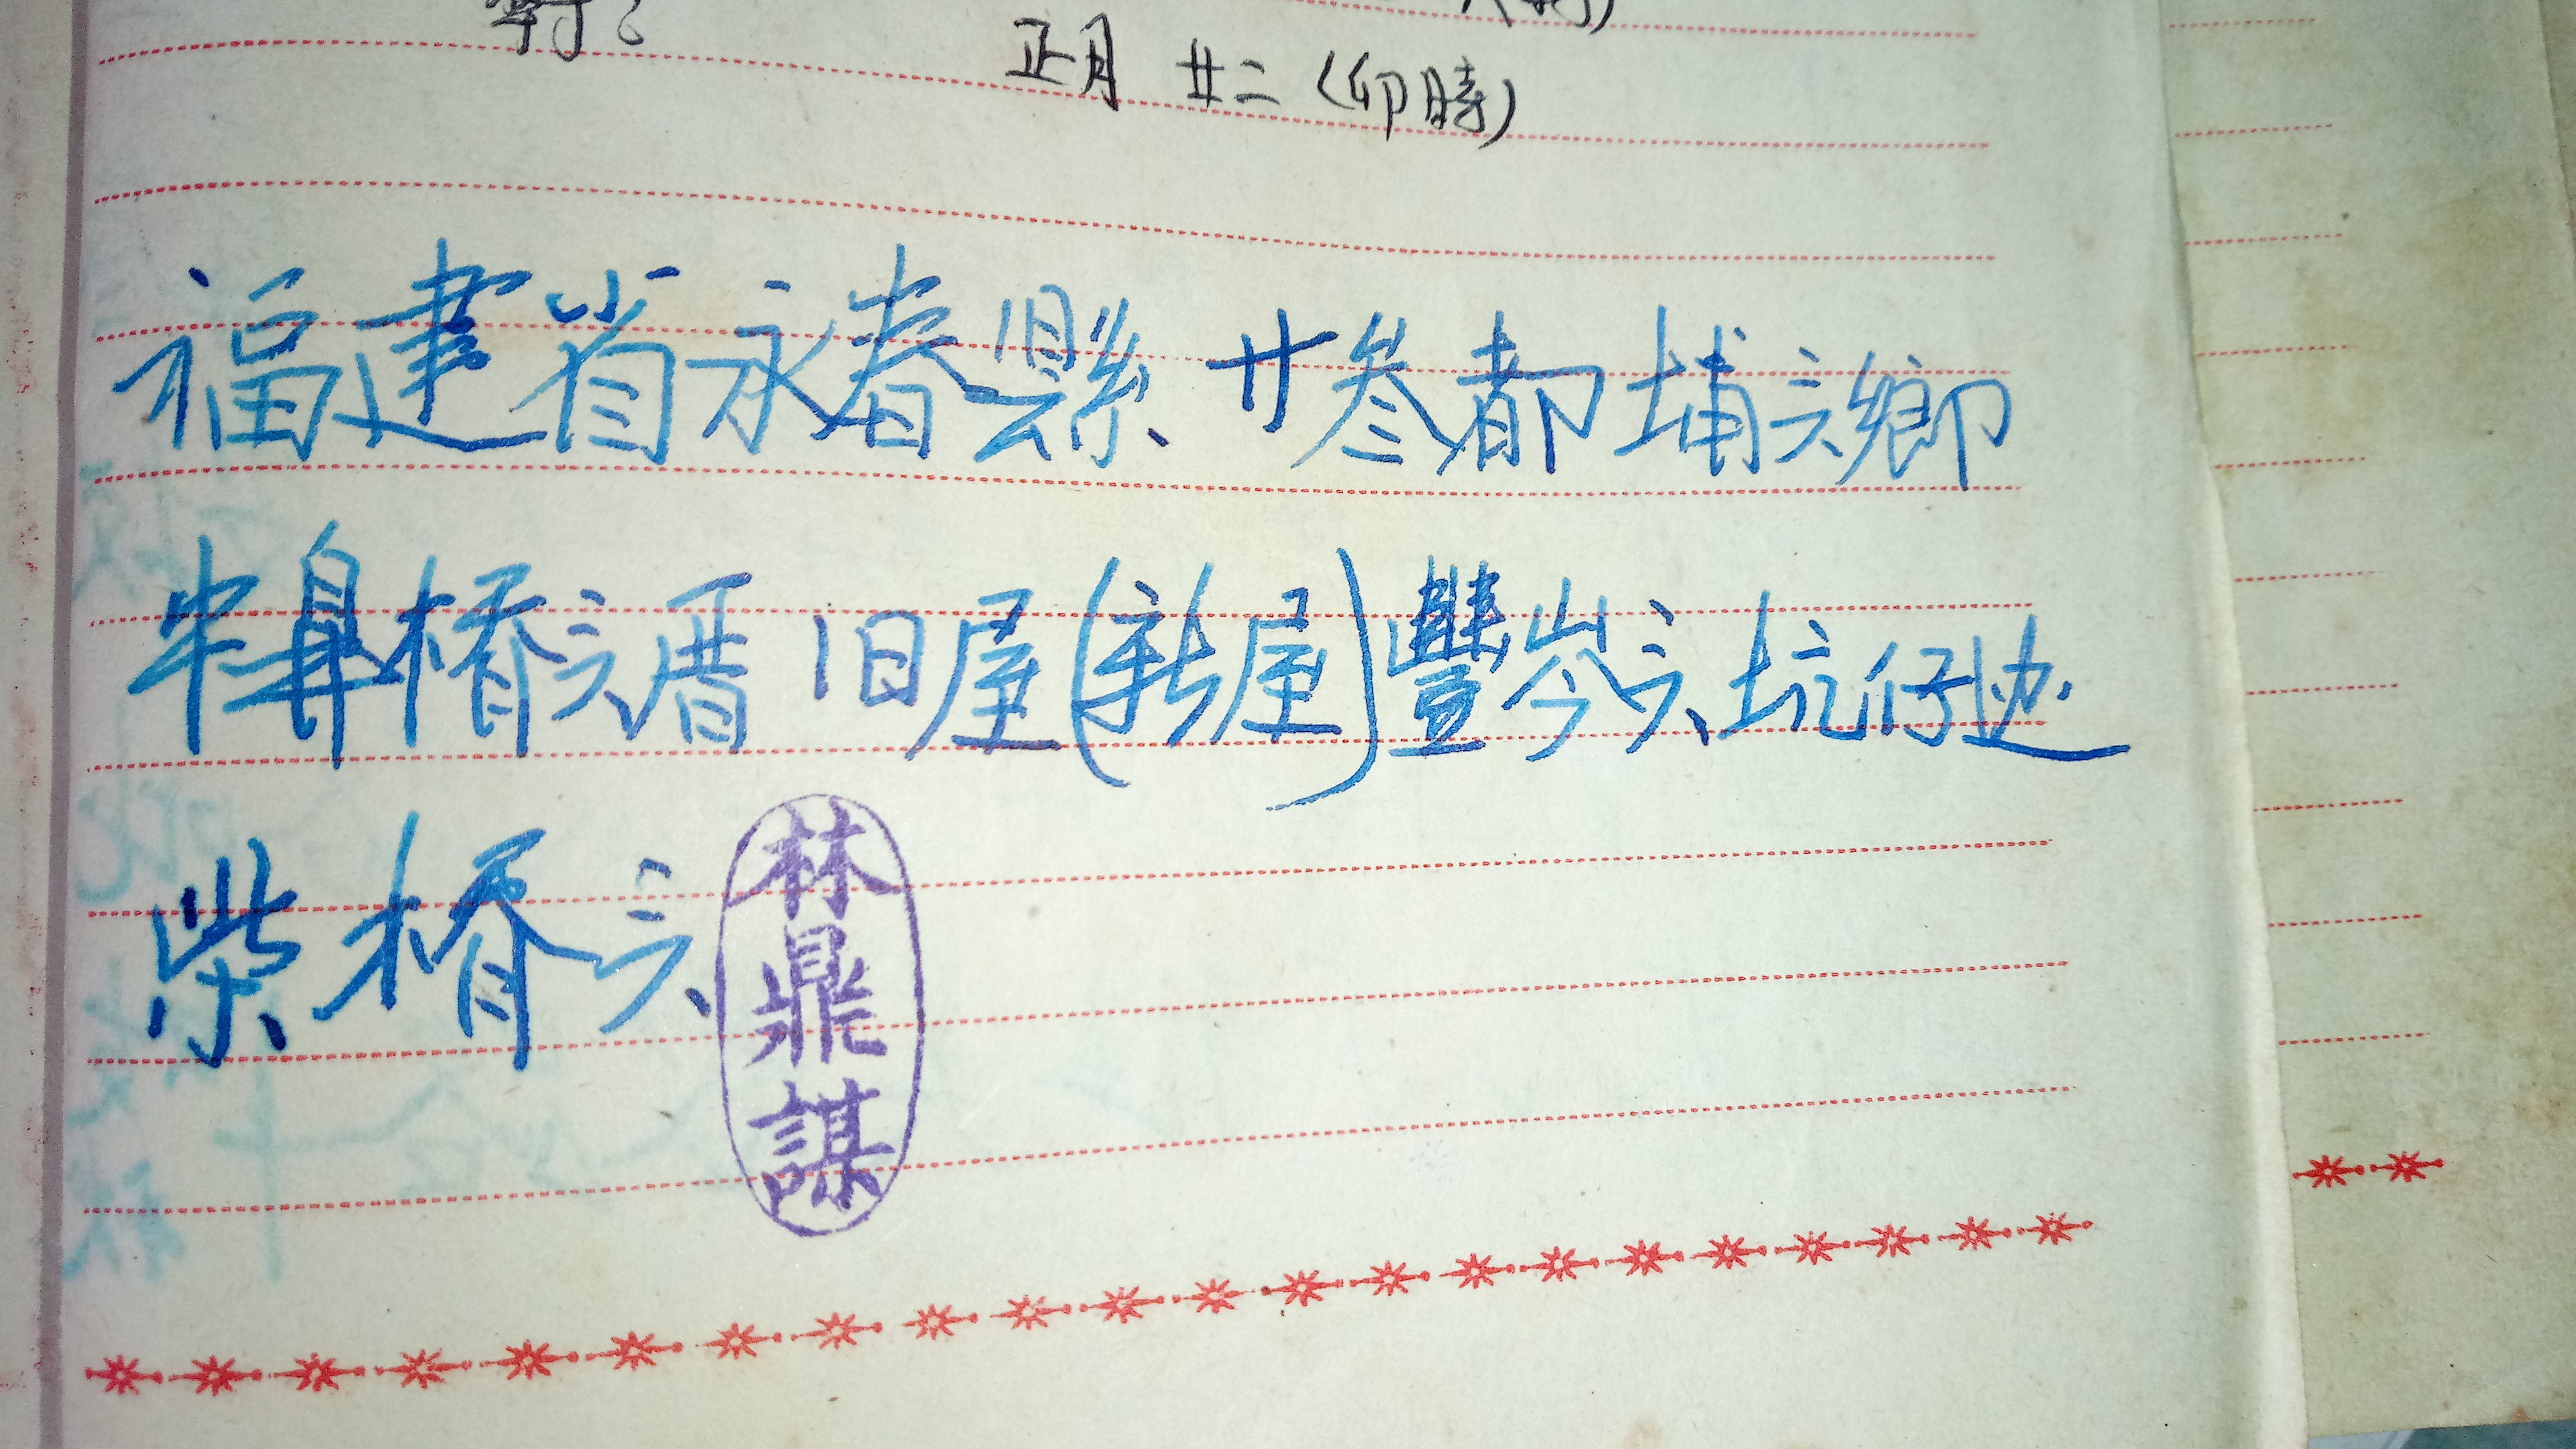 正月 廿二 (卯時)
福建省永春縣、廿叁都埔头鄉
橋头厝 旧屋(新屋)豐岑头坑仔边
柴橋头
林鼎謀